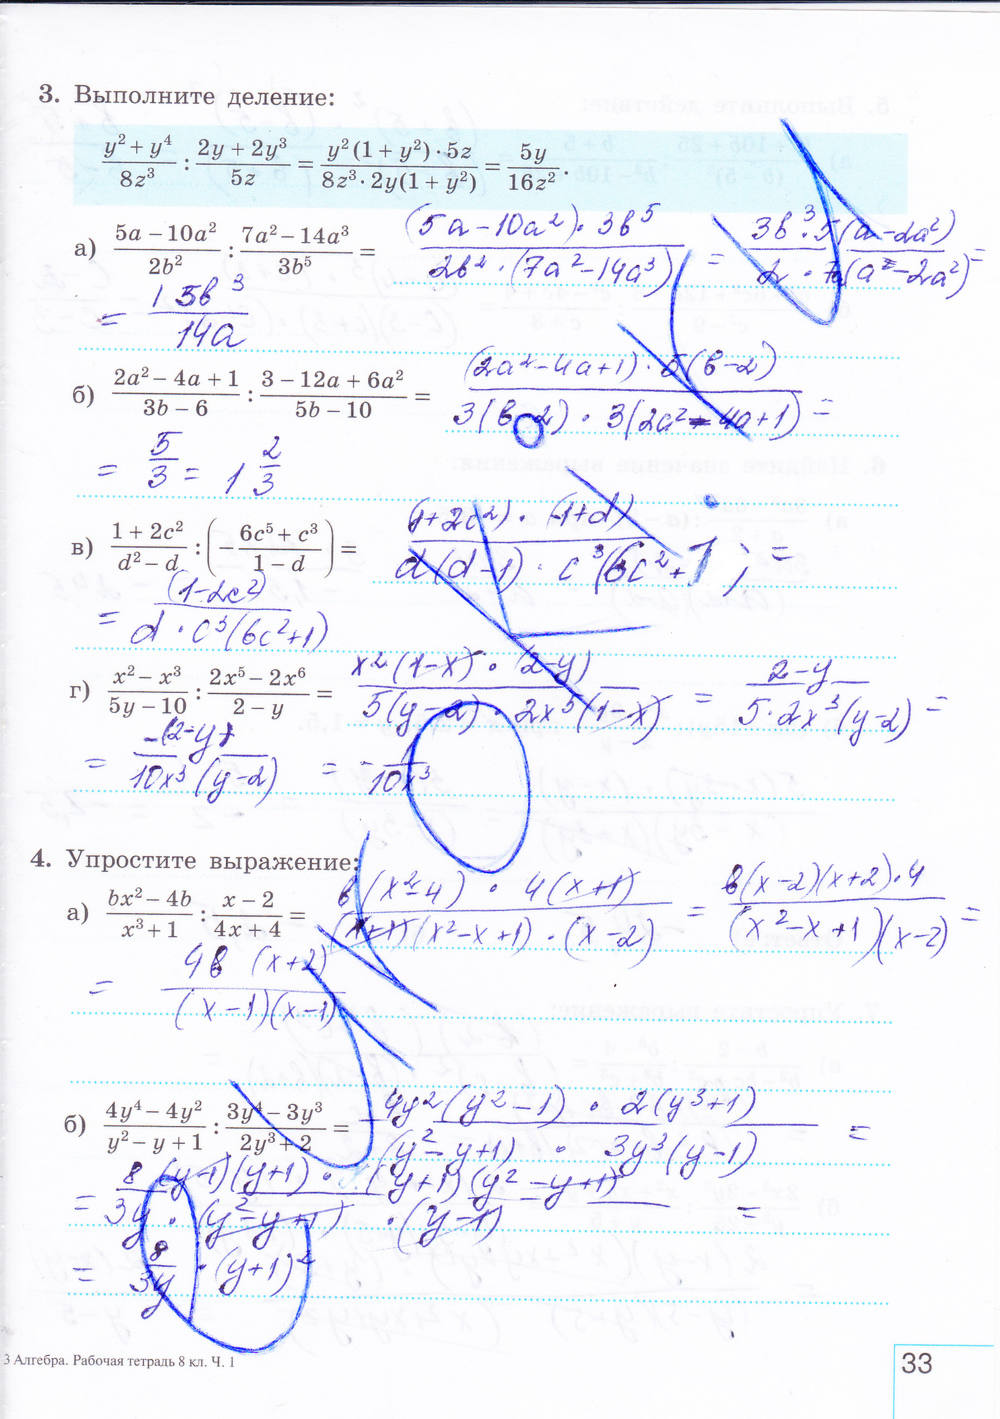 3. Выполните деление:
(y² + y⁴)/(8z³) : (2y + 2y³)/(5z) = (y²(1 + y²)·5z)/(8z³·2y(1 + y²)) = 5y/(16z²).
а) (5a − 10a²)/(2b²) : (7a² − 14a³)/(3b⁵) = ((5a − 10a²)·3b⁵)/(2b²·(7a² − 14a³)) = (3b³·5(a − 2a²))/(2·7a(a − 2a²)) =
= 15b³/(14a)
б) (2a² − 4a + 1)/(3b − 6) : (3 − 12a + 6a²)/(5b − 10) = ((2a² − 4a + 1)·5(b − 2))/(3(b − 2)·3(2a² − 4a + 1)) =
= 5/3 = 1 2/3
в) (1 + 2c²)/(d² − d) : (−(6c⁵ + c³)/(1 − d)) = ((1 + 2c²)·(−1 + d))/(d(d − 1)·c³(6c² + 1)) =
= (1 − 2c²)/(d·c³(6c² + 1))
г) (x² − x³)/(5y − 10) : (2x⁵ − 2x⁶)/(2 − y) = (x²(1 − x)·(2 − y))/(5(y − 2) 2x⁵(1 − x)) = (2 − y)/(5·2x³(y − 2)) =
= −(2 − y)/(10x³(y − 2)) = −1/(10x³)
4. Упростите выражение:
а) (bx² − 4b)/(x³ + 1) : (x − 2)/(4x + 4) = (b(x² − 4)·4(x + 1))/((x + 1)(x² − x + 1)·(x − 2)) = (b(x − 2)(x + 2)·4)/((x² − x + 1)(x − 2)) =
= (4b(x + 2))/((x − 1)(x − 1))
б) (4y⁴ − 4y²)/(y² − y + 1) : (3y⁴ − 3y³)/(2y³ + 2) = (4y²(y² − 1)·2(y³ + 1))/((y² − y + 1)·3y³(y − 1)) =
= (8(y − 1)(y + 1)·(y + 1)(y² − y + 1))/(3y·(y² − y + 1)·(y − 1)) =
= 8/(3y)·(y + 1)²
3 Алгебра. Рабочая тетрадь 8 кл. Ч. 1
33